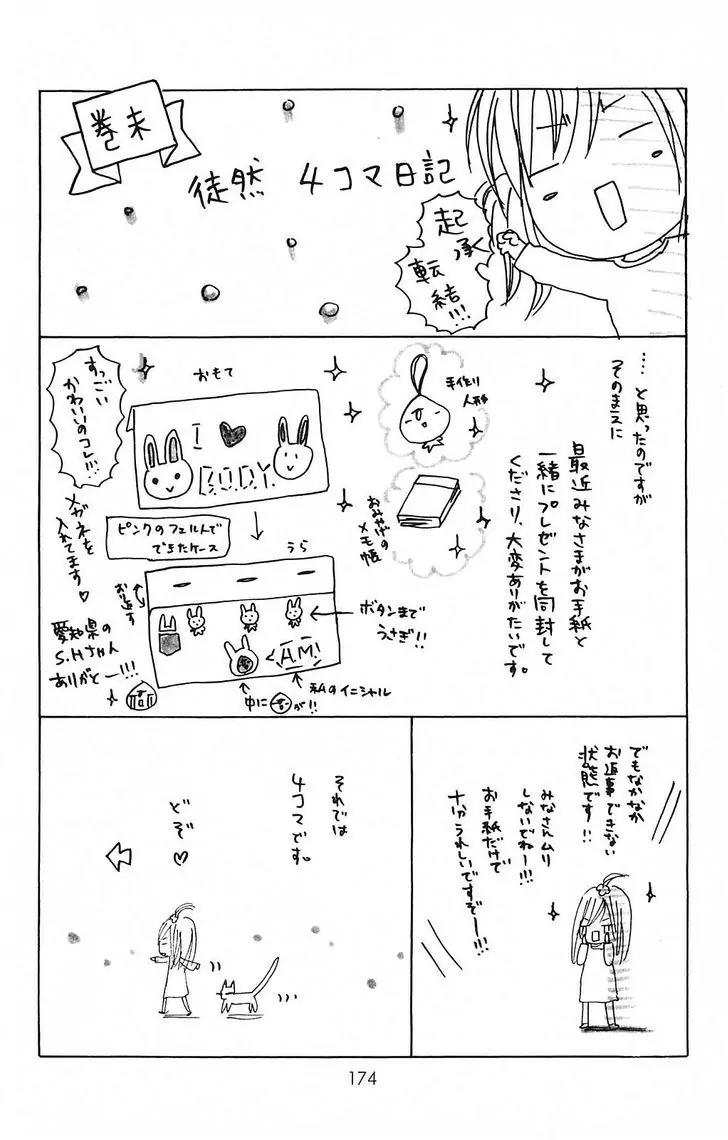 巻末
徒然 4コマ日記
起
承
転
結!!!
……と思ったのですが
そのまえに
最近みなさまがお手紙と
一緒にプレゼントを同封して
くださり、大変ありがたいです。
手作り
人形
おみやげの
メモ帳
すっごい
かわいいのコレ!!!
おもて
I ♥
BODY
ピンクのフェルトで
できたケース
メガネを
入れてます♡
うら
お返す
ボタンまで
うさぎ!!
A.M!
私のイニシャル
中に
が!!
愛知県の
S.Hさん
ありがとー!!!
でもなかなか
お返事できない
状態です!!
みなさんムリ
しないでねー!!!
お手紙だけで
十分うれしいですぞー!!!
それでは
4コマです。
どぞ♡
174